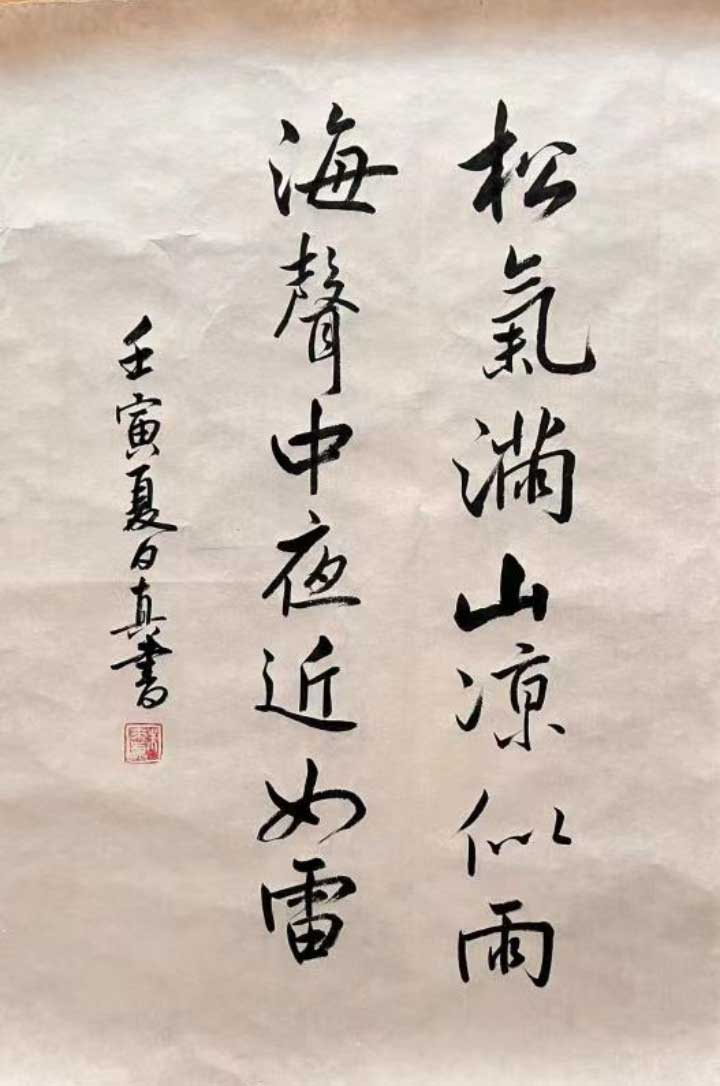 松氣滿山凉似雨
海聲中夜近如雷
壬寅夏日真書